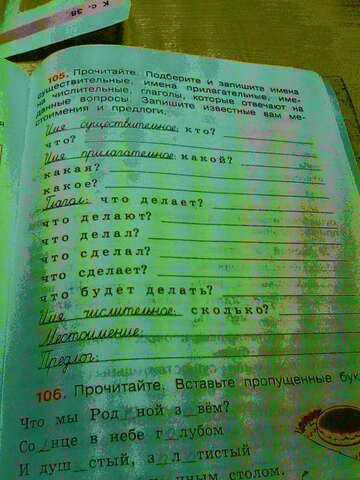 К с. 38
105. Прочитайте. Подберите и запишите имена
существительные, имена прилагательные, име-
на числительные, глаголы, которые отвечают на
данные вопросы. Запишите известные вам ме-
стоимения и предлоги.
Имя существительное: кто?
что?
Имя прилагательное: какой?
какая?
какое?
Глагол: что делает?
что делают?
что делал?
что сделал?
что сделает?
что будет делать?
Имя числительное: сколько?
Местоимение:
Предлог:
106. Прочитайте. Вставьте пропущенные бук
Что мы Род_ной з_вём?
Со_нце в небе г_лубом
И душ_стый, з_л_тистый
ным столом.